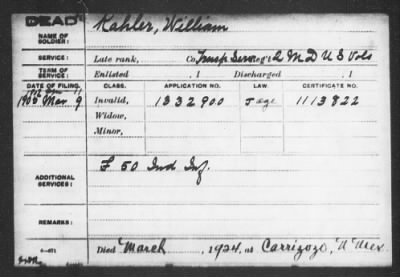 DEAD
NAME OF SOLDIER: Kahler, William
SERVICE: Late rank, Co. Trnsp. Serv. Reg't 2 M D U S Vols
TERM OF SERVICE: Enlisted , 1 Discharged , 1
DATE OF FILING. CLASS. APPLICATION NO. LAW. CERTIFICATE NO.
1908 Mar 9 Invalid, 1332900 1113822
Widow,
Minor,
ADDITIONAL SERVICES: F 50 Ind Inf.
REMARKS:
Died March , 1924, at Carrizozo, N Mex.